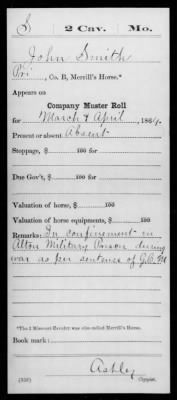 S | 2 Cav. | Mo.
John Smith
Pvt, Co. B, Merrill's Horse.*
Appears on
Company Muster Roll
for March & April, 1864.
Present or absent Absent
Stoppage, $ 100 for
Due Gov't, $ 100 for
Valuation of horse, $ 100
Valuation of horse equipments, $ 100
Remarks: In confinement in
Alton Military Prison during
war as per sentence of G.C.M.
*The 2 Missouri Cavalry was also called Merrill's Horse.
Book mark:
Ashley
(358) Copyist.